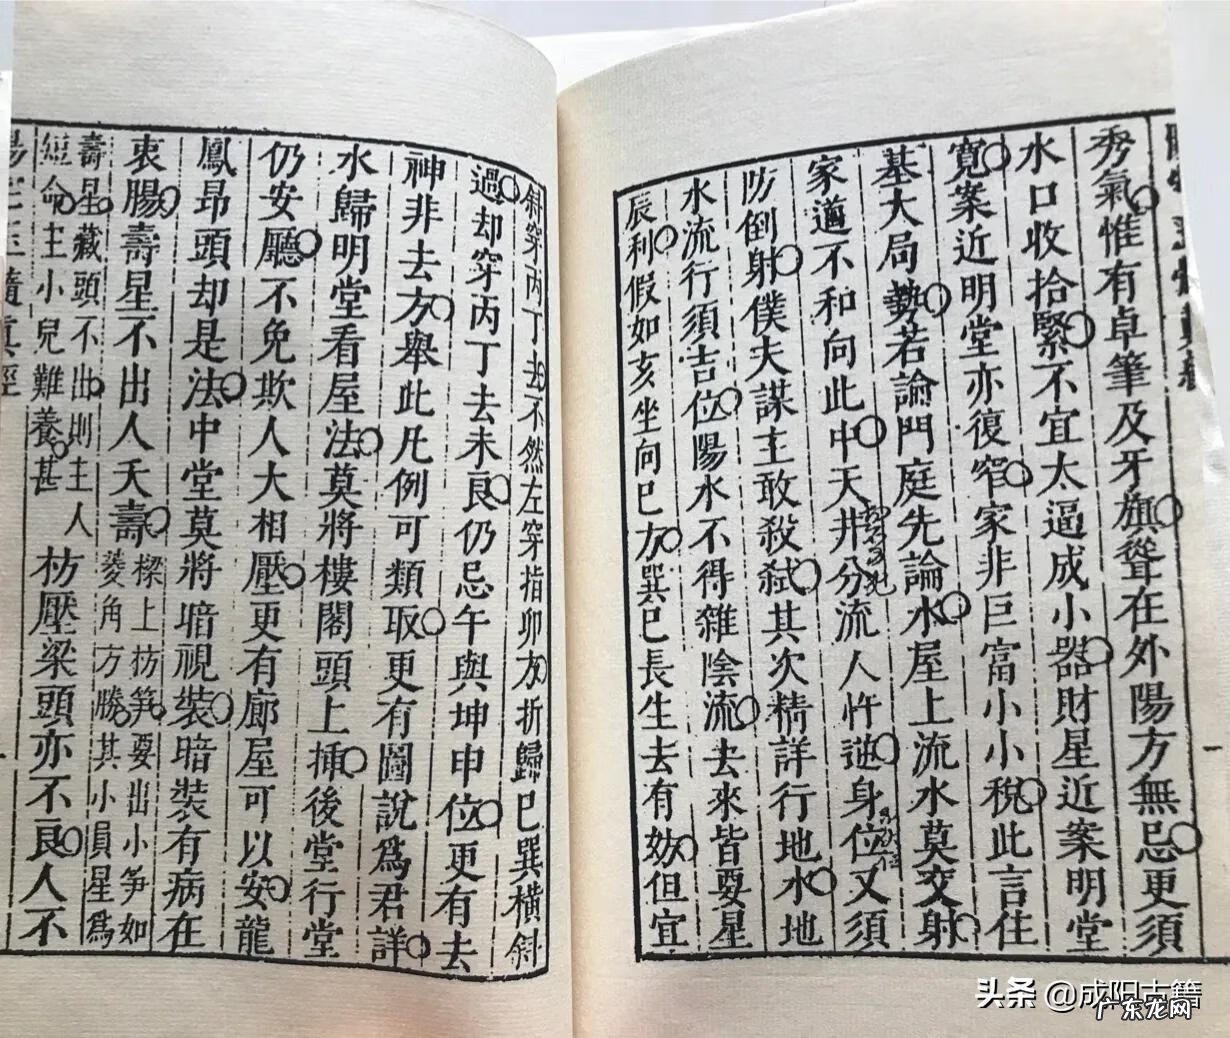 秀氣惟有卓筆及牙旗聳在外陽方無忌更須
水口收拾緊不宜太逼成小器財星近案明堂
寬案近明堂亦復窄家非巨富小小稅此言住
基大局勢若論門庭先論水屋上流水莫交射
家遒不和向此中天井分流人忤逆身位又須
防倒射僕夫謀主敢殺弒其次精詳行地水地
水流行須吉位陽水不得雜陰流去來皆要星
辰利假如亥坐向巳方巽巳長生去有妨但宜
斜穿丙丁去不然左穿指卯方折歸巳巽橫斜
過却穿丙丁去未良仍忌午與坤申位更有去
神非去方舉此凡例可類取更有圖說爲君詳
水歸明堂看屋法莫將樓閣頭上揷後堂行堂
仍安廳不免欺人大相壓更有廊屋可以安龍
鳳昂頭却是法中堂莫將暗視裝暗裝有病在
衷腸壽星不出人夭壽
樑上枋笋要出小笋如
菱角方勝其小員星爲
壽星藏頭不出則主人
短命主小兒難養甚
枋壓梁頭亦不良人不
头条 @成阳古籍
广东龙网